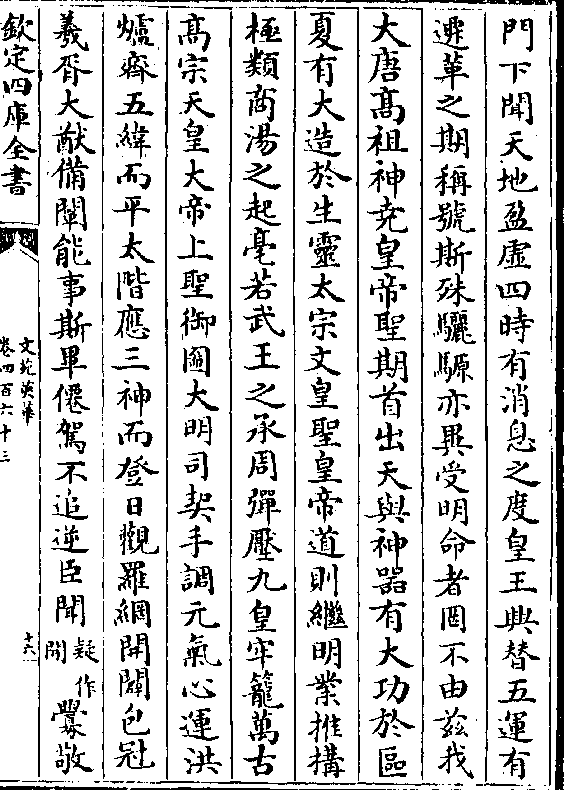 門下聞天地盈虚四時有消息之度皇王興替五運有
遷革之期稱號斯殊驪騵亦異受明命者罔不由兹我
大唐髙祖神堯皇帝聖期首出天與神器有大功於區
夏有大造於生靈太宗文皇聖皇帝道則繼明業推構
極類商湯之起亳若武王之承周彈壓九皇牢籠萬古
髙宗天皇大帝上聖御圖大明司契手調元氣心運洪
爐齊五緯而平太階應三神而登日觀羅網開闢包冠
羲胥大猷備闡能事斯畢僊駕不追逆臣聞疑作閒釁敬
欽定四庫全書
文苑英華
卷四百六十三
十六